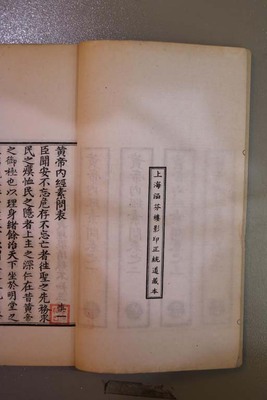 上海涵芬樓影印正統道藏本
黃帝內經素問表
臣聞安不忘危存不忘亡者往聖之先務求
民之瘼恤民之隱者上主之深仁在昔黃帝
之御極也以理身緒餘治天下坐於明堂之